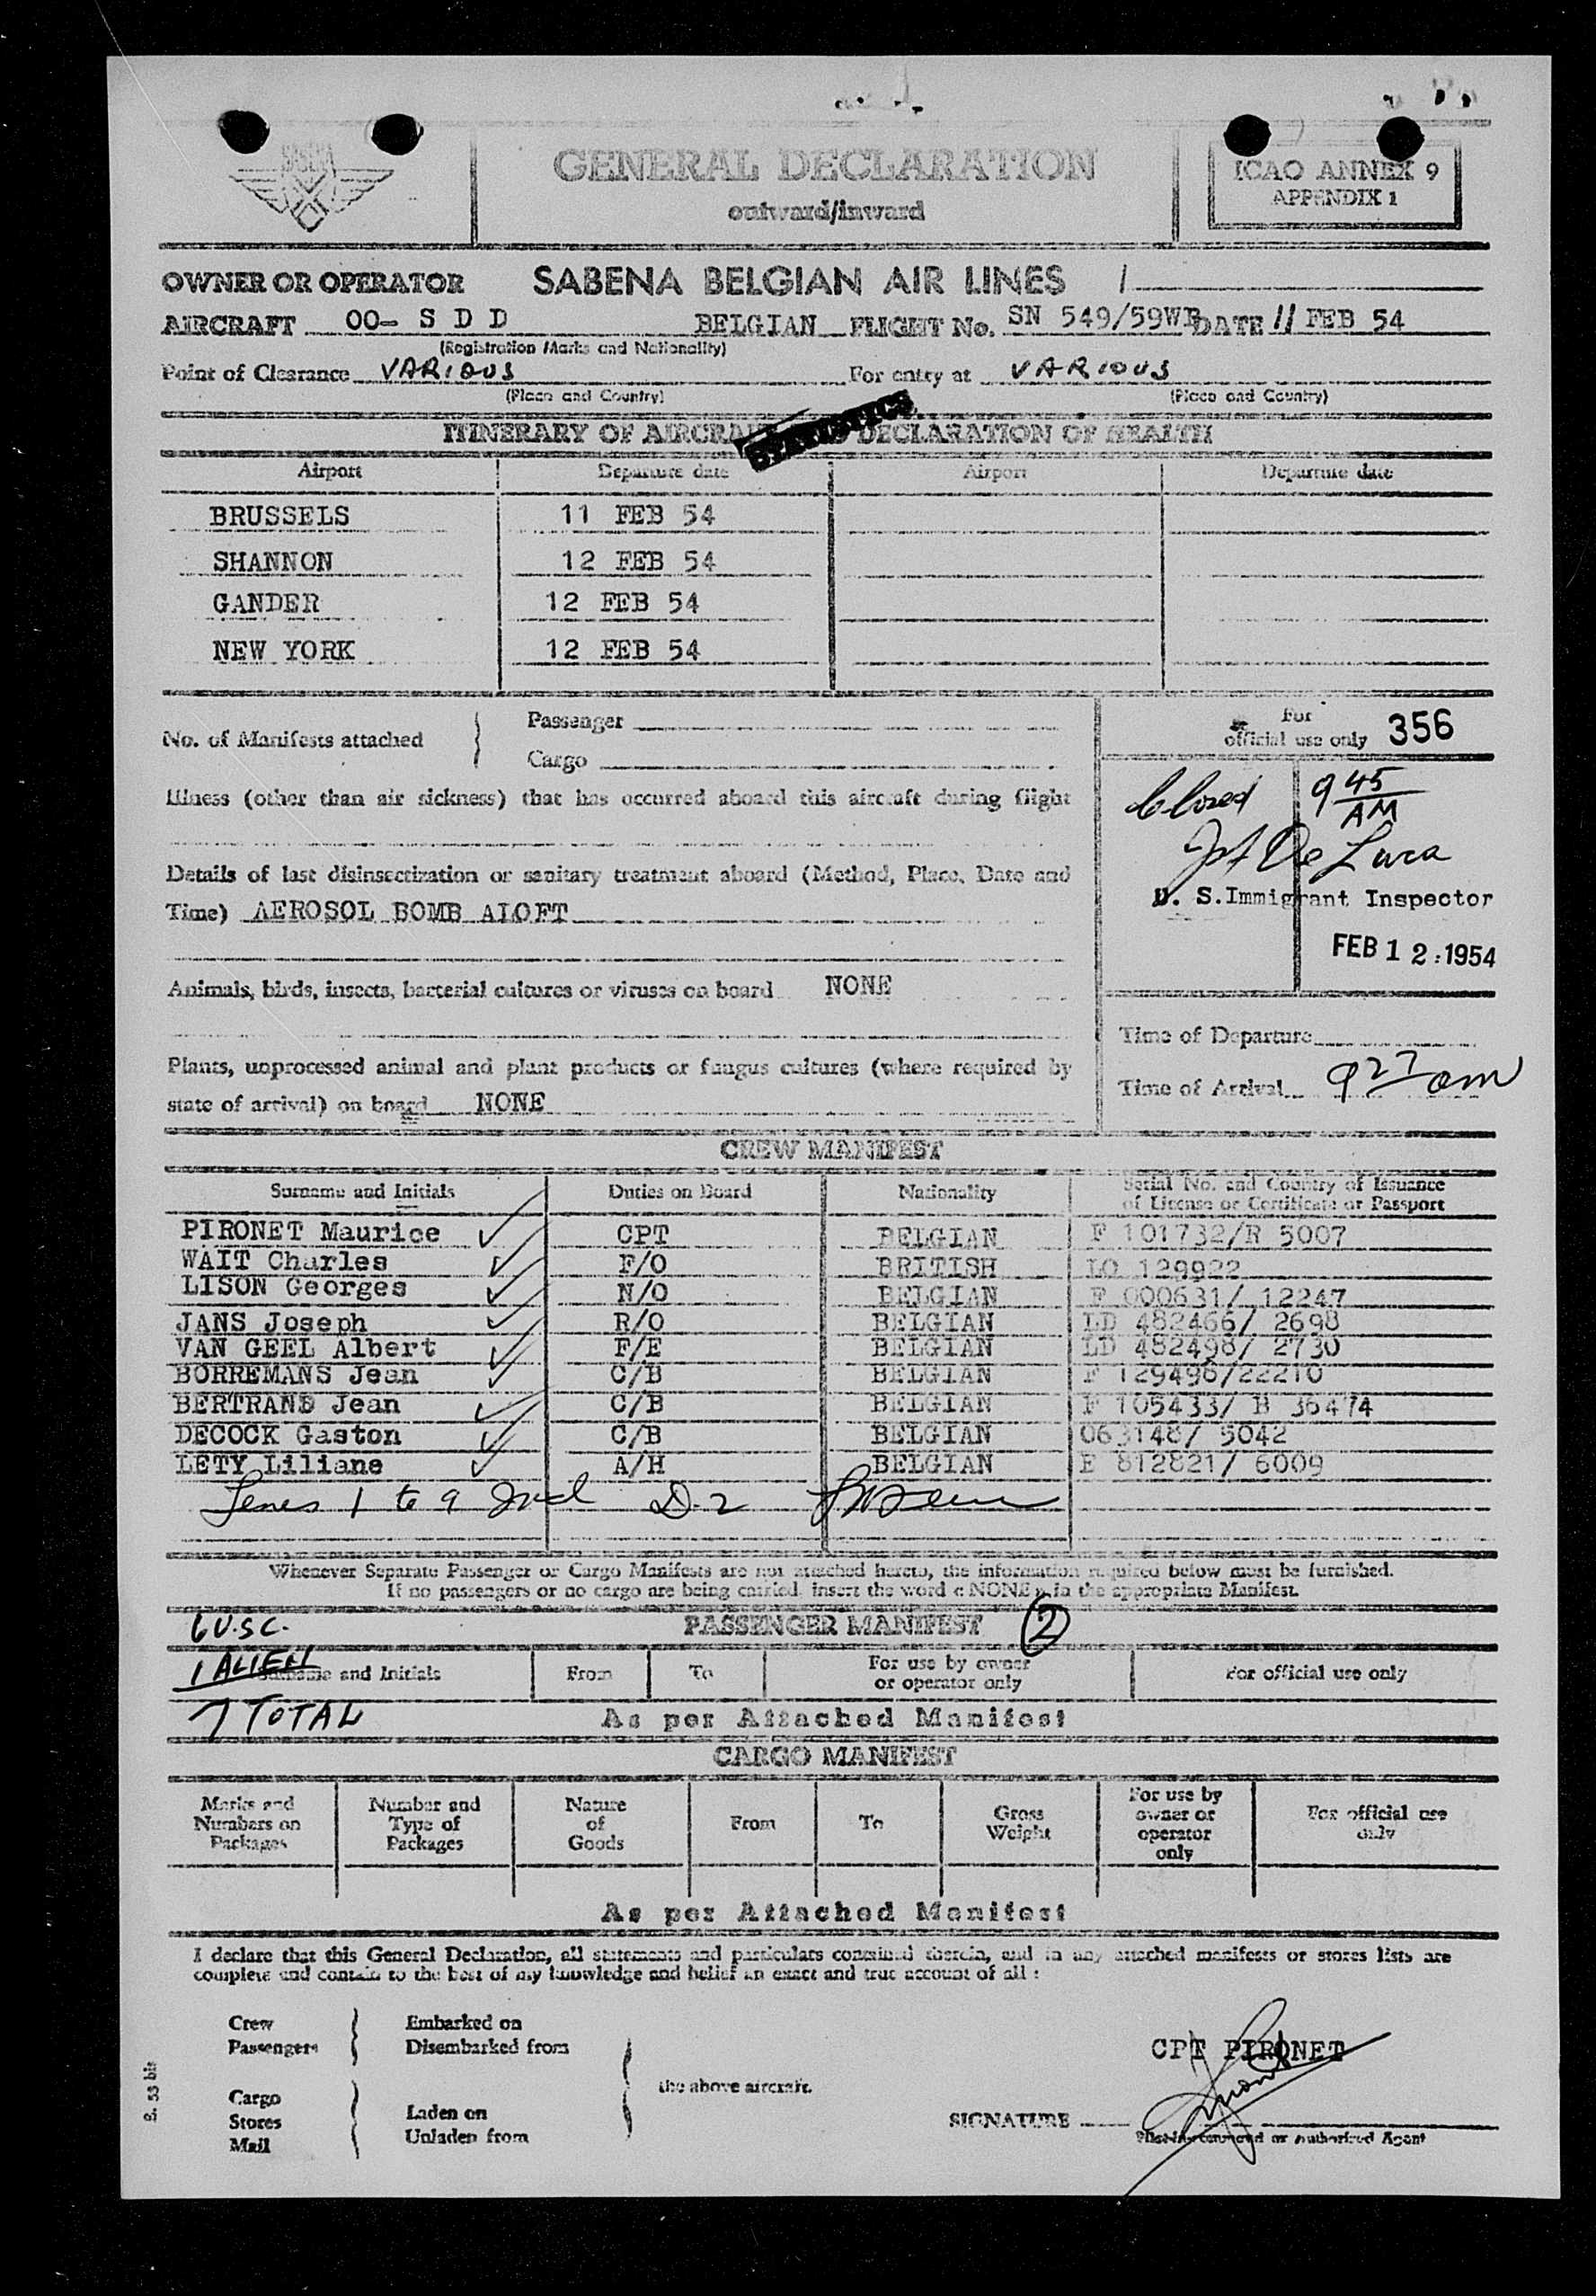 SABENA
GENERAL DECLARATION
outward/inward
ICAO ANNEX 9
APPENDIX 1
OWNER OR OPERATOR SABENA BELGIAN AIR LINES /
AIRCRAFT OO- S D D BELGIAN FLIGHT No. SN 549/59WB DATE 11 FEB 54
(Registration Marks and Nationality)
Point of Clearance VARIOUS For entry at VARIOUS
(Place and Country) (Place and Country)
ITINERARY OF AIRCRAFT DECLARATION OF HEALTH
STATISTICS
Airport Departure date Airport Departure date
BRUSSELS 11 FEB 54
SHANNON 12 FEB 54
GANDER 12 FEB 54
NEW YORK 12 FEB 54
No. of Manifests attached } Passenger
Cargo
For official use only 356
Illness (other than air sickness) that has occurred aboard this aircraft during flight
Closed 9 45 AM
De Luca
U. S. Immigrant Inspector
FEB 12 1954
Details of last disinsectization or sanitary treatment aboard (Method, Place, Date and
Time) AEROSOL BOMB ALOFT
Animals, birds, insects, bacterial cultures or viruses on board NONE
Time of Departure
Plants, unprocessed animal and plant products or fungus cultures (where required by
state of arrival) on board NONE
Time of Arrival 9 27 am
CREW MANIFEST
Surname and Initials Duties on Board Nationality Serial No. and Country of Issuance
of License or Certificate or Passport
PIRONET Maurice CPT BELGIAN F 101732/R 5007
WAIT Charles F/O BRITISH LO 129922
LISON Georges N/O BELGIAN F 000631/ 12247
JANS Joseph R/O BELGIAN LD 482466/ 2698
VAN GEEL Albert F/E BELGIAN LD 482498/ 2730
BORREMANS Jean C/B BELGIAN F 129496/22210
BERTRAND Jean C/B BELGIAN F 105433/ B 36474
DECOCK Gaston C/B BELGIAN 063148/ 5042
LETY Liliane A/H BELGIAN E 812821/ 6009
Lines 1 to 9 Incl D-2
Whenever Separate Passenger or Cargo Manifests are not attached hereto, the information required below must be furnished.
If no passengers or no cargo are being carried insert the word « NONE » in the appropriate Manifest.
6 U.S.C. PASSENGER MANIFEST 2
1 ALIEN
Surname and Initials From To For use by owner or operator only For official use only
7 TOTAL As per Attached Manifest
CARGO MANIFEST
Marks and Numbers on Packages Number and Type of Packages Nature of Goods From To Gross Weight For use by owner or operator only For official use only
As per Attached Manifest
I declare that this General Declaration, all statements and particulars contained therein, and in any attached manifests or stores lists are
complete and contain to the best of my knowledge and belief an exact and true account of all :
Crew Embarked on
Passengers Disembarked from
CPT PIRONET
the above aircraft.
Cargo
Stores Laden on
Mail Unladen from
SIGNATURE
Pilot-in-command or Authorized Agent
S. 53 bis